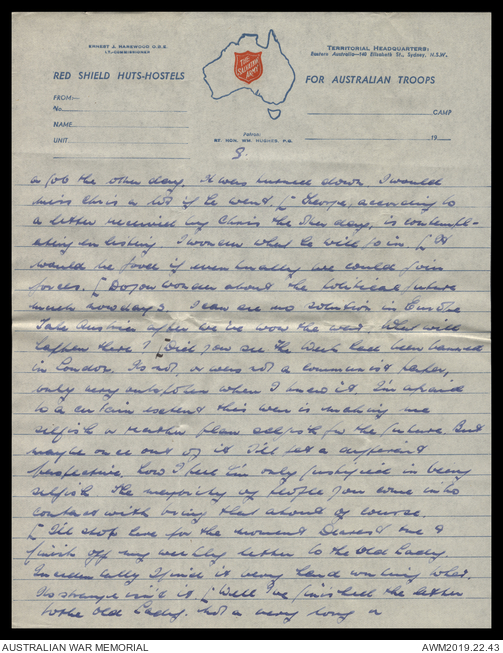 ERNEST J. HAREWOOD O.B.E.
LT.-COMMISSIONER
TERRITORIAL HEADQUARTERS:
Eastern Australia—140 Elizabeth St., Sydney, N.S.W.
RED SHIELD HUTS-HOSTELS
THE SALVATION ARMY
FOR AUSTRALIAN TROOPS
FROM:—
No.
CAMP
NAME
Patron:
RT. HON. WM. HUGHES P.C.
UNIT
19
a job the other day. It was turned down. I would
miss Chris a lot if he went. [ George, according to
a letter received by Chris the other day, is contempl-
ating enlisting. I wonder what he will join. [ It
would be good if eventually we could join
forces. [ Do you wonder about the political future
much nowadays. I can see no solution in Europe
Take Austria after we've won the war. What will
happen there? [ Did you see the Week had been banned
in London. Its not, or was not a communist paper,
only very outspoken when I knew it. I'm afraid
to a certain extent this war is making me
selfish or rather plan selfish for the future. But
maybe once out of it I'll get a different
perspective. Now I feel I'm only justified in being
selfish the majority of people you come into
contact with bring that about of course.
[ I'll stop here for the moment Dearest one &
finish off my weekly letter to the Old Lady.
Incidentally I find it very hard writing what.
Its strange isn't it. [ Well I've finished the letter
to the Old Lady. Not a very long or
AUSTRALIAN WAR MEMORIAL
AWM2019.22.43